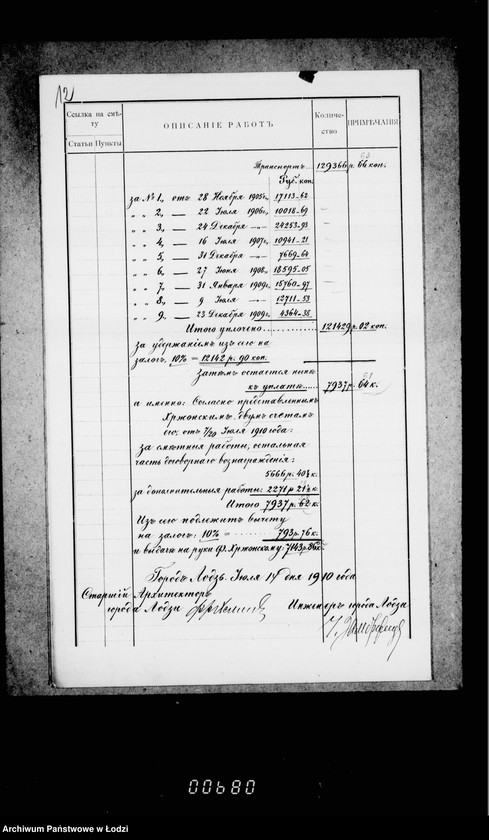 12
Ссылка на смѣту
Статьи Пункты
ОПИСАНІЕ РАБОТЪ
Количество
ПРИМѢЧАНІЯ
Транспортъ 129366 р. 66 коп.
Руб. коп.
за № 1, отъ 28 Ноября 1905 г. 17113-62
„ „ 2, — 22 Іюля 1906 г. 10018-69
„ „ 3, — 24 Декабря — 24253-93
„ „ 4, — 16 Іюля 1907 г. 10941-21
„ „ 5, — 31 Декабря — 7669-64
„ „ 6, — 27 Іюня 1908 г. 18595-05
„ „ 7, — 31 Января 1909 г. 15760-97
„ „ 8, — 9 Іюля — 12711-53
„ „ 9, — 23 Декабря 1909 г. 4364-38
Итого уплочено 121429 р. 02 коп.
за удержаніемъ изъ сего на
залогъ 10% = 12142 р. 90 коп.
Затѣмъ остается нынѣ
къ уплатѣ 7937 р. 64 к.
а именно: Согласно представленнымъ
Хржонскимъ двумъ счетамъ
его: отъ 7/20 Іюля 1910 года:
за смѣтныя работы, остальная
часть договорнаго вознагражденія:
5666 р. 40½ к.
за дополнительныя работы: 2271 р. 21½ к.
Итого 7937 р. 62 к.
Изъ сего подлежитъ вычету
на залогъ: 10% = 793 р. 76 к.
и выдача на руки Ф. Хржонскому: 7143 р. 86 к.
Городъ Лодзь. Іюля 14 дня 1910 года
Старшій Архитекторъ
города Лодзи
Инженеръ города Лодзи
00680
Archiwum Państwowe w Łodzi